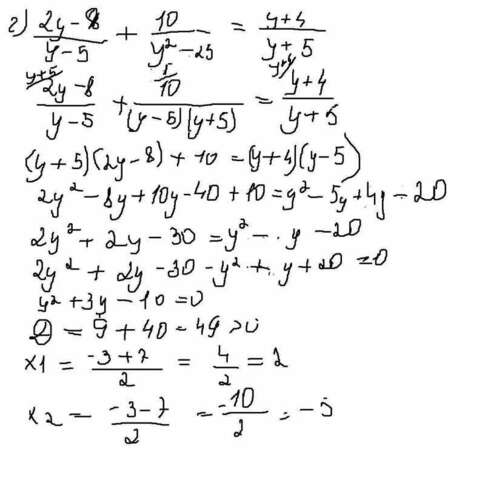 г) (2y-8)/(y-5) + 10/(y²-25) = (y+4)/(y+5)
y+5 1 y+5
(2y-8)/(y-5) + 10/((y-5)(y+5)) = (y+4)/(y+5)
(y+5)(2y-8)+10=(y+4)(y-5)
2y²-8y+10y-40+10=y²-5y+4y-20
2y²+2y-30=y²-y-20
2y²+2y-30-y²+y+20=0
y²+3y-10=0
D=9+40=49>0
x1=(-3+7)/2=4/2=2
x2=(-3-7)/2=-10/2=-5